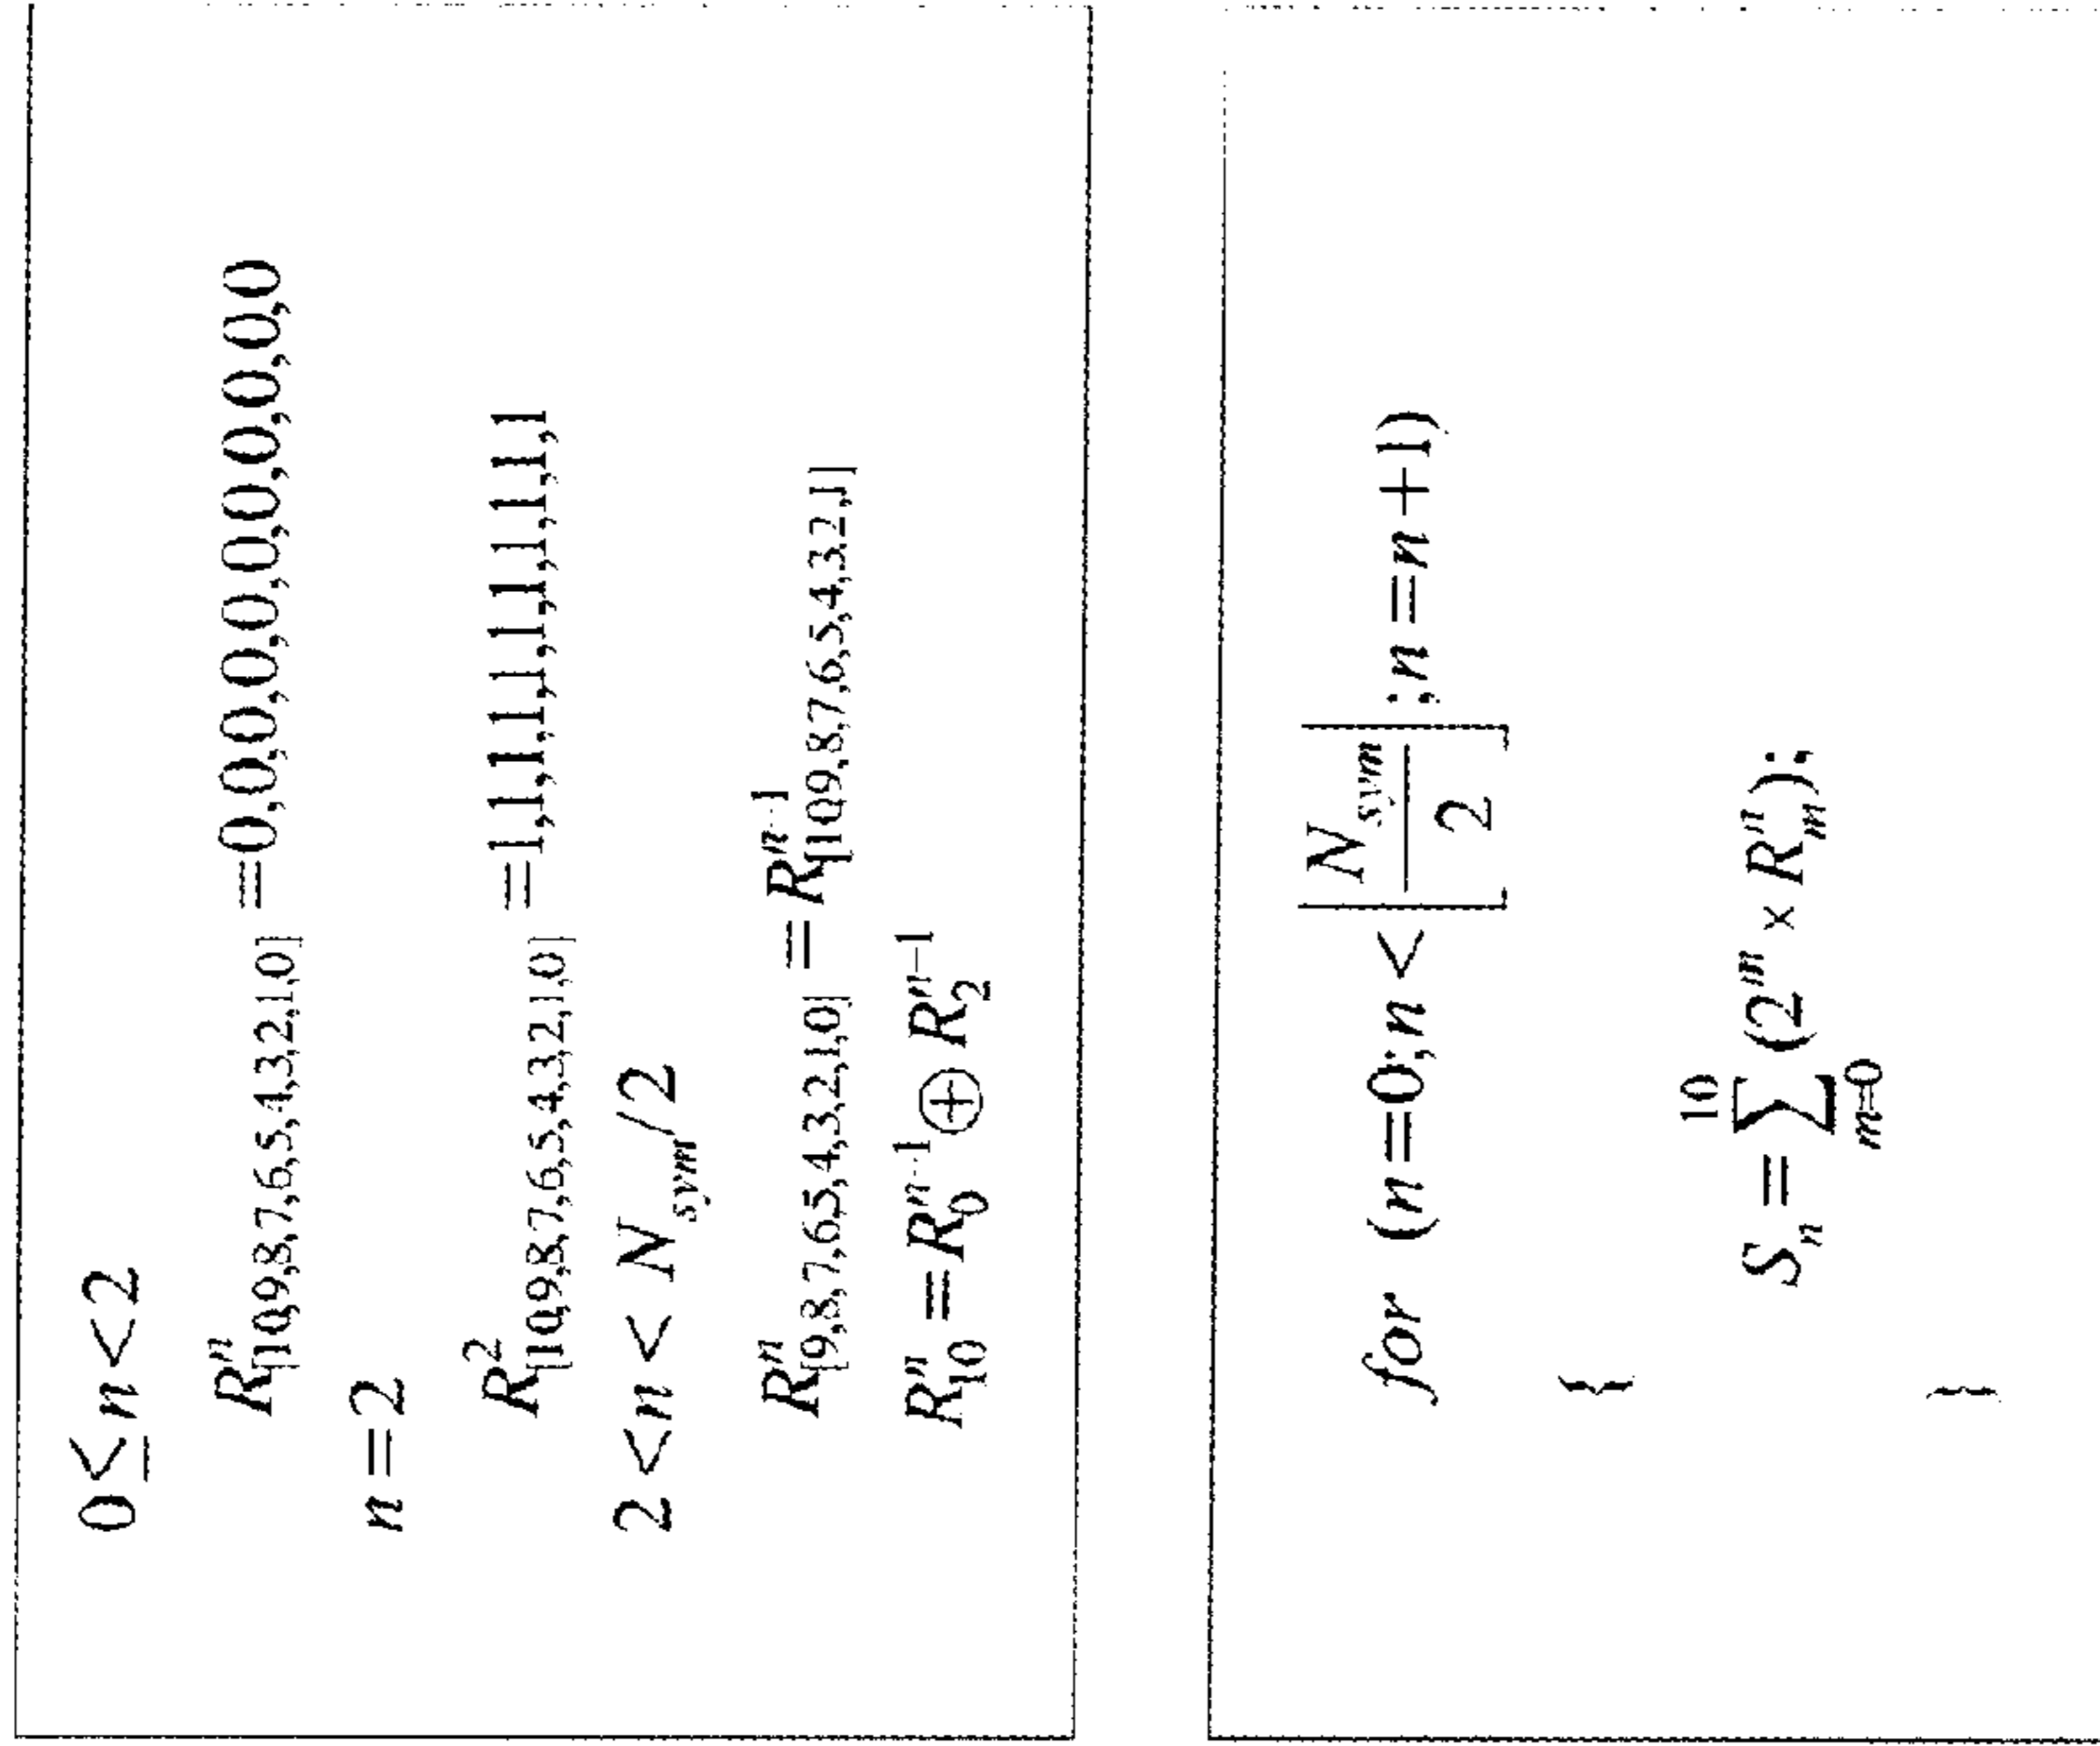 0≤n<2
R^n_[10,9,8,7,6,5,4,3,2,1,0] =0,0,0,0,0,0,0,0,0,0,0
n=2
R^2_[10,9,8,7,6,5,4,3,2,1,0] =1,1,1,1,1,1,1,1,1,1,1
2<n< N_sym/2
R^n_[9,8,7,6,5,4,3,2,1,0] =R^{n-1}_[10,9,8,7,6,5,4,3,2,1]
R^n_10 =R^{n-1}_0⊕R^{n-1}_2
for (n=0;n<⌊N_sym/2⌋;n=n+1)
{
S_n=∑_{m=0}^{10}(2^m×R^n_m);
}